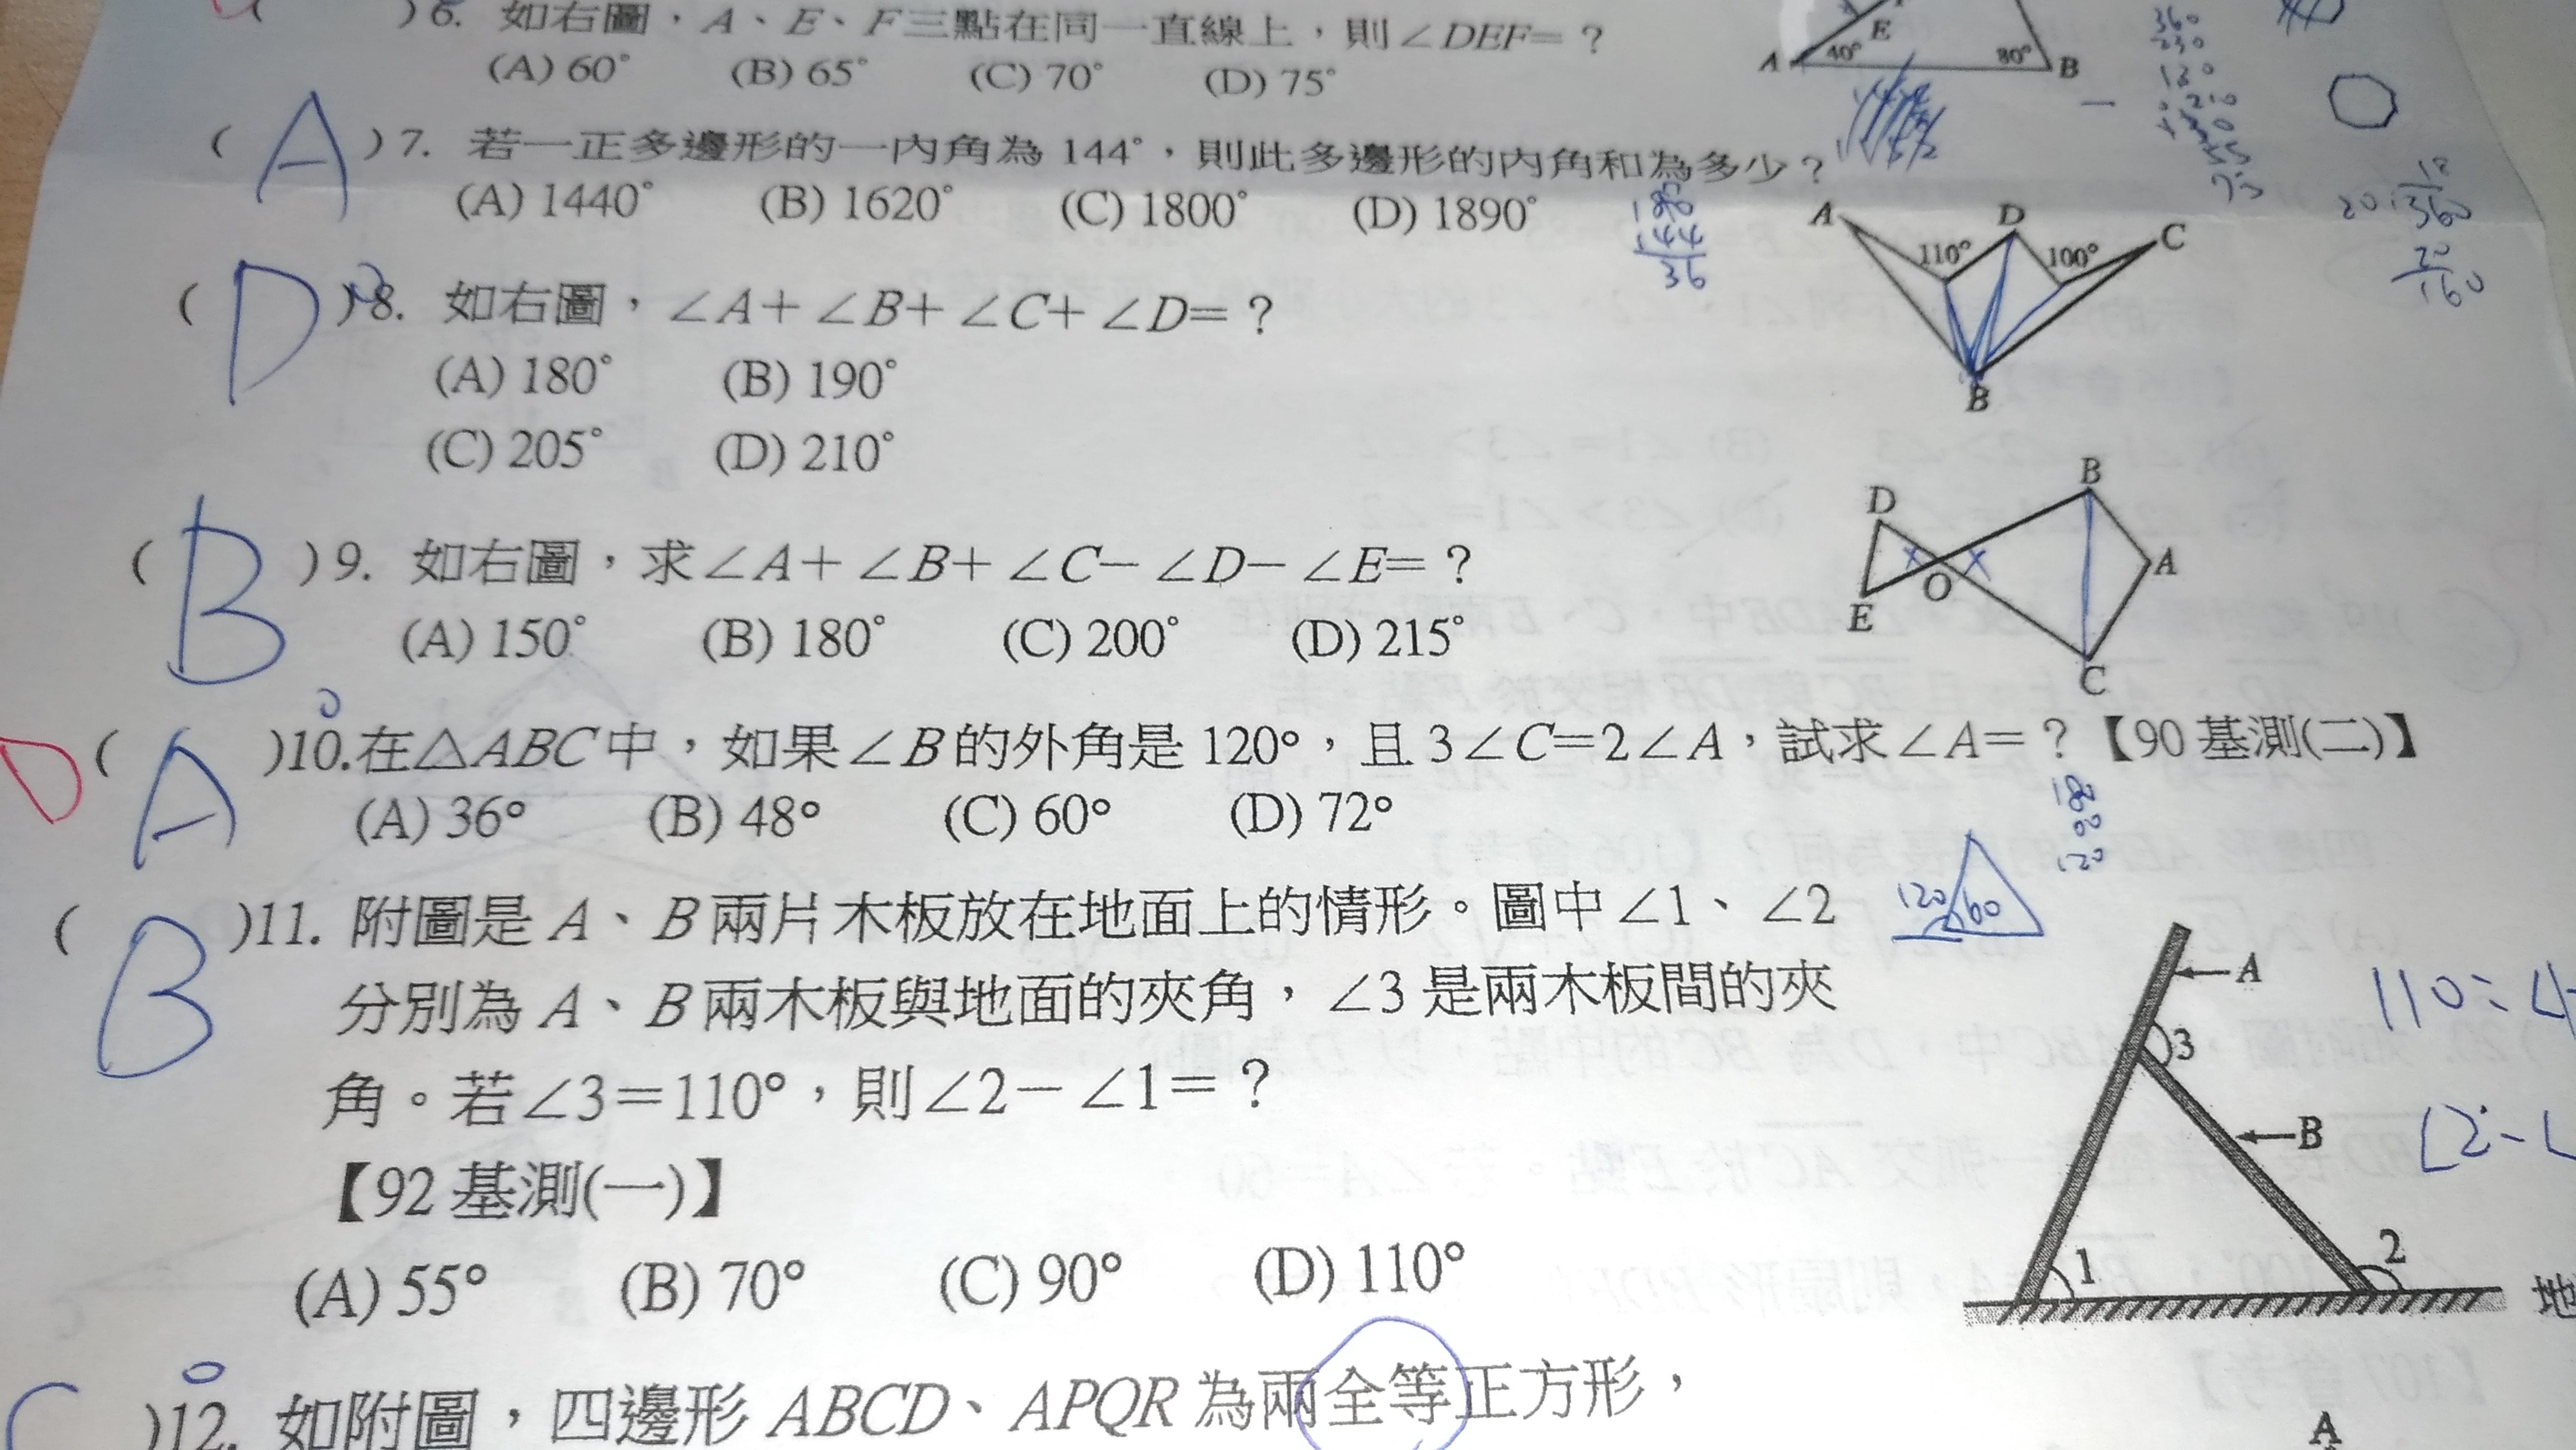 )6. 如右圖，A、E、F三點在同一直線上，則∠DEF=？
(A) 60° (B) 65° (C) 70° (D) 75°
E
A 40° 80° B
( A )7. 若一正多邊形的一內角為144°，則此多邊形的內角和為多少？
(A) 1440° (B) 1620° (C) 1800° (D) 1890°
180
144
36
( D )8. 如右圖，∠A+∠B+∠C+∠D=？
(A) 180° (B) 190°
(C) 205° (D) 210°
A D C
110° 100°
B
( B )9. 如右圖，求∠A+∠B+∠C-∠D-∠E=？
(A) 150° (B) 180° (C) 200° (D) 215°
B
D
A
O
E
C
D ( A )10.在△ABC中，如果∠B的外角是120°，且3∠C=2∠A，試求∠A=？【90基測(二)】
(A) 36° (B) 48° (C) 60° (D) 72°
120 60
( B )11. 附圖是A、B兩片木板放在地面上的情形。圖中∠1、∠2
分別為A、B兩木板與地面的夾角，∠3是兩木板間的夾
角。若∠3=110°，則∠2-∠1=？
【92基測(一)】
(A) 55° (B) 70° (C) 90° (D) 110°
A
3
B
1 2
地
)12. 如附圖，四邊形ABCD、APQR為兩全等正方形，
A